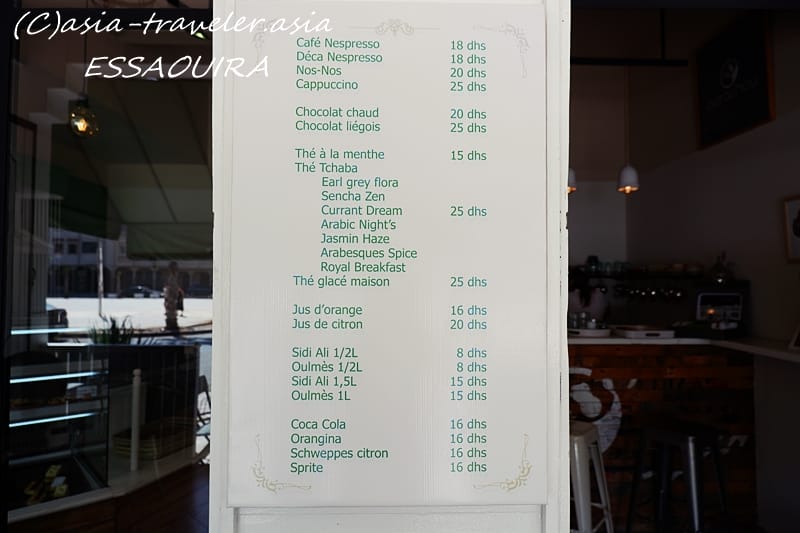 (C)asia-traveler.asia
ESSAOUIRA
Café Nespresso 18 dhs
Déca Nespresso 18 dhs
Nos-Nos 20 dhs
Cappuccino 25 dhs
Chocolat chaud 20 dhs
Chocolat liégois 25 dhs
Thé à la menthe 15 dhs
Thé Tchaba
Earl grey flora
Sencha Zen
Currant Dream 25 dhs
Arabic Night's
Jasmin Haze
Arabesques Spice
Royal Breakfast
Thé glacé maison 25 dhs
Jus d'orange 16 dhs
Jus de citron 20 dhs
Sidi Ali 1/2L 8 dhs
Oulmès 1/2L 8 dhs
Sidi Ali 1,5L 15 dhs
Oulmès 1L 15 dhs
Coca Cola 16 dhs
Orangina 16 dhs
Schweppes citron 16 dhs
Sprite 16 dhs